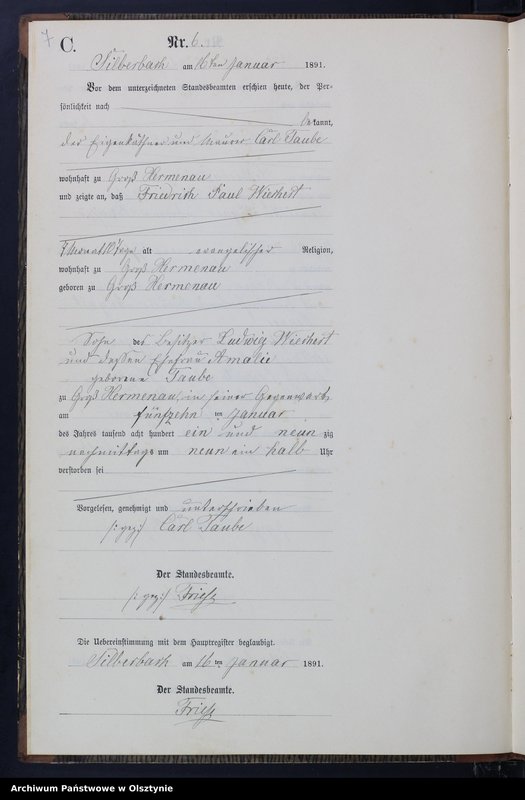 7
C.
Nr. 6.
Silberbach am 16ten Januar 1891.
Vor dem unterzeichneten Standesbeamten erschien heute, der Per-
sönlichkeit nach
be kannt,
der Eigenkäthner und Maurer Carl Taube
wohnhaft zu Groß Hermenau
und zeigte an, daß Friedrich Paul Wiechert
7 Monat 10 Tage alt evangelischer Religion,
wohnhaft zu Groß Hermenau
geboren zu Groß Hermenau
Sohn des Besitzer Ludwig Wiechert
und dessen Ehefrau Amalie
geborene Taube
zu Groß Hermenau, in seiner Gegenwart
am fünfzehn ten Januar
des Jahres tausend acht hundert ein und neun zig
nachmittags um neun ein halb Uhr
verstorben sei
Vorgelesen, genehmigt und unterschrieben
/: gez :/ Carl Taube
Der Standesbeamte.
/: gez :/ Friese
Die Uebereinstimmung mit dem Hauptregister beglaubigt.
Silberbach am 16 ten Januar 1891.
Der Standesbeamte.
Friese
Archiwum Państwowe w Olsztynie